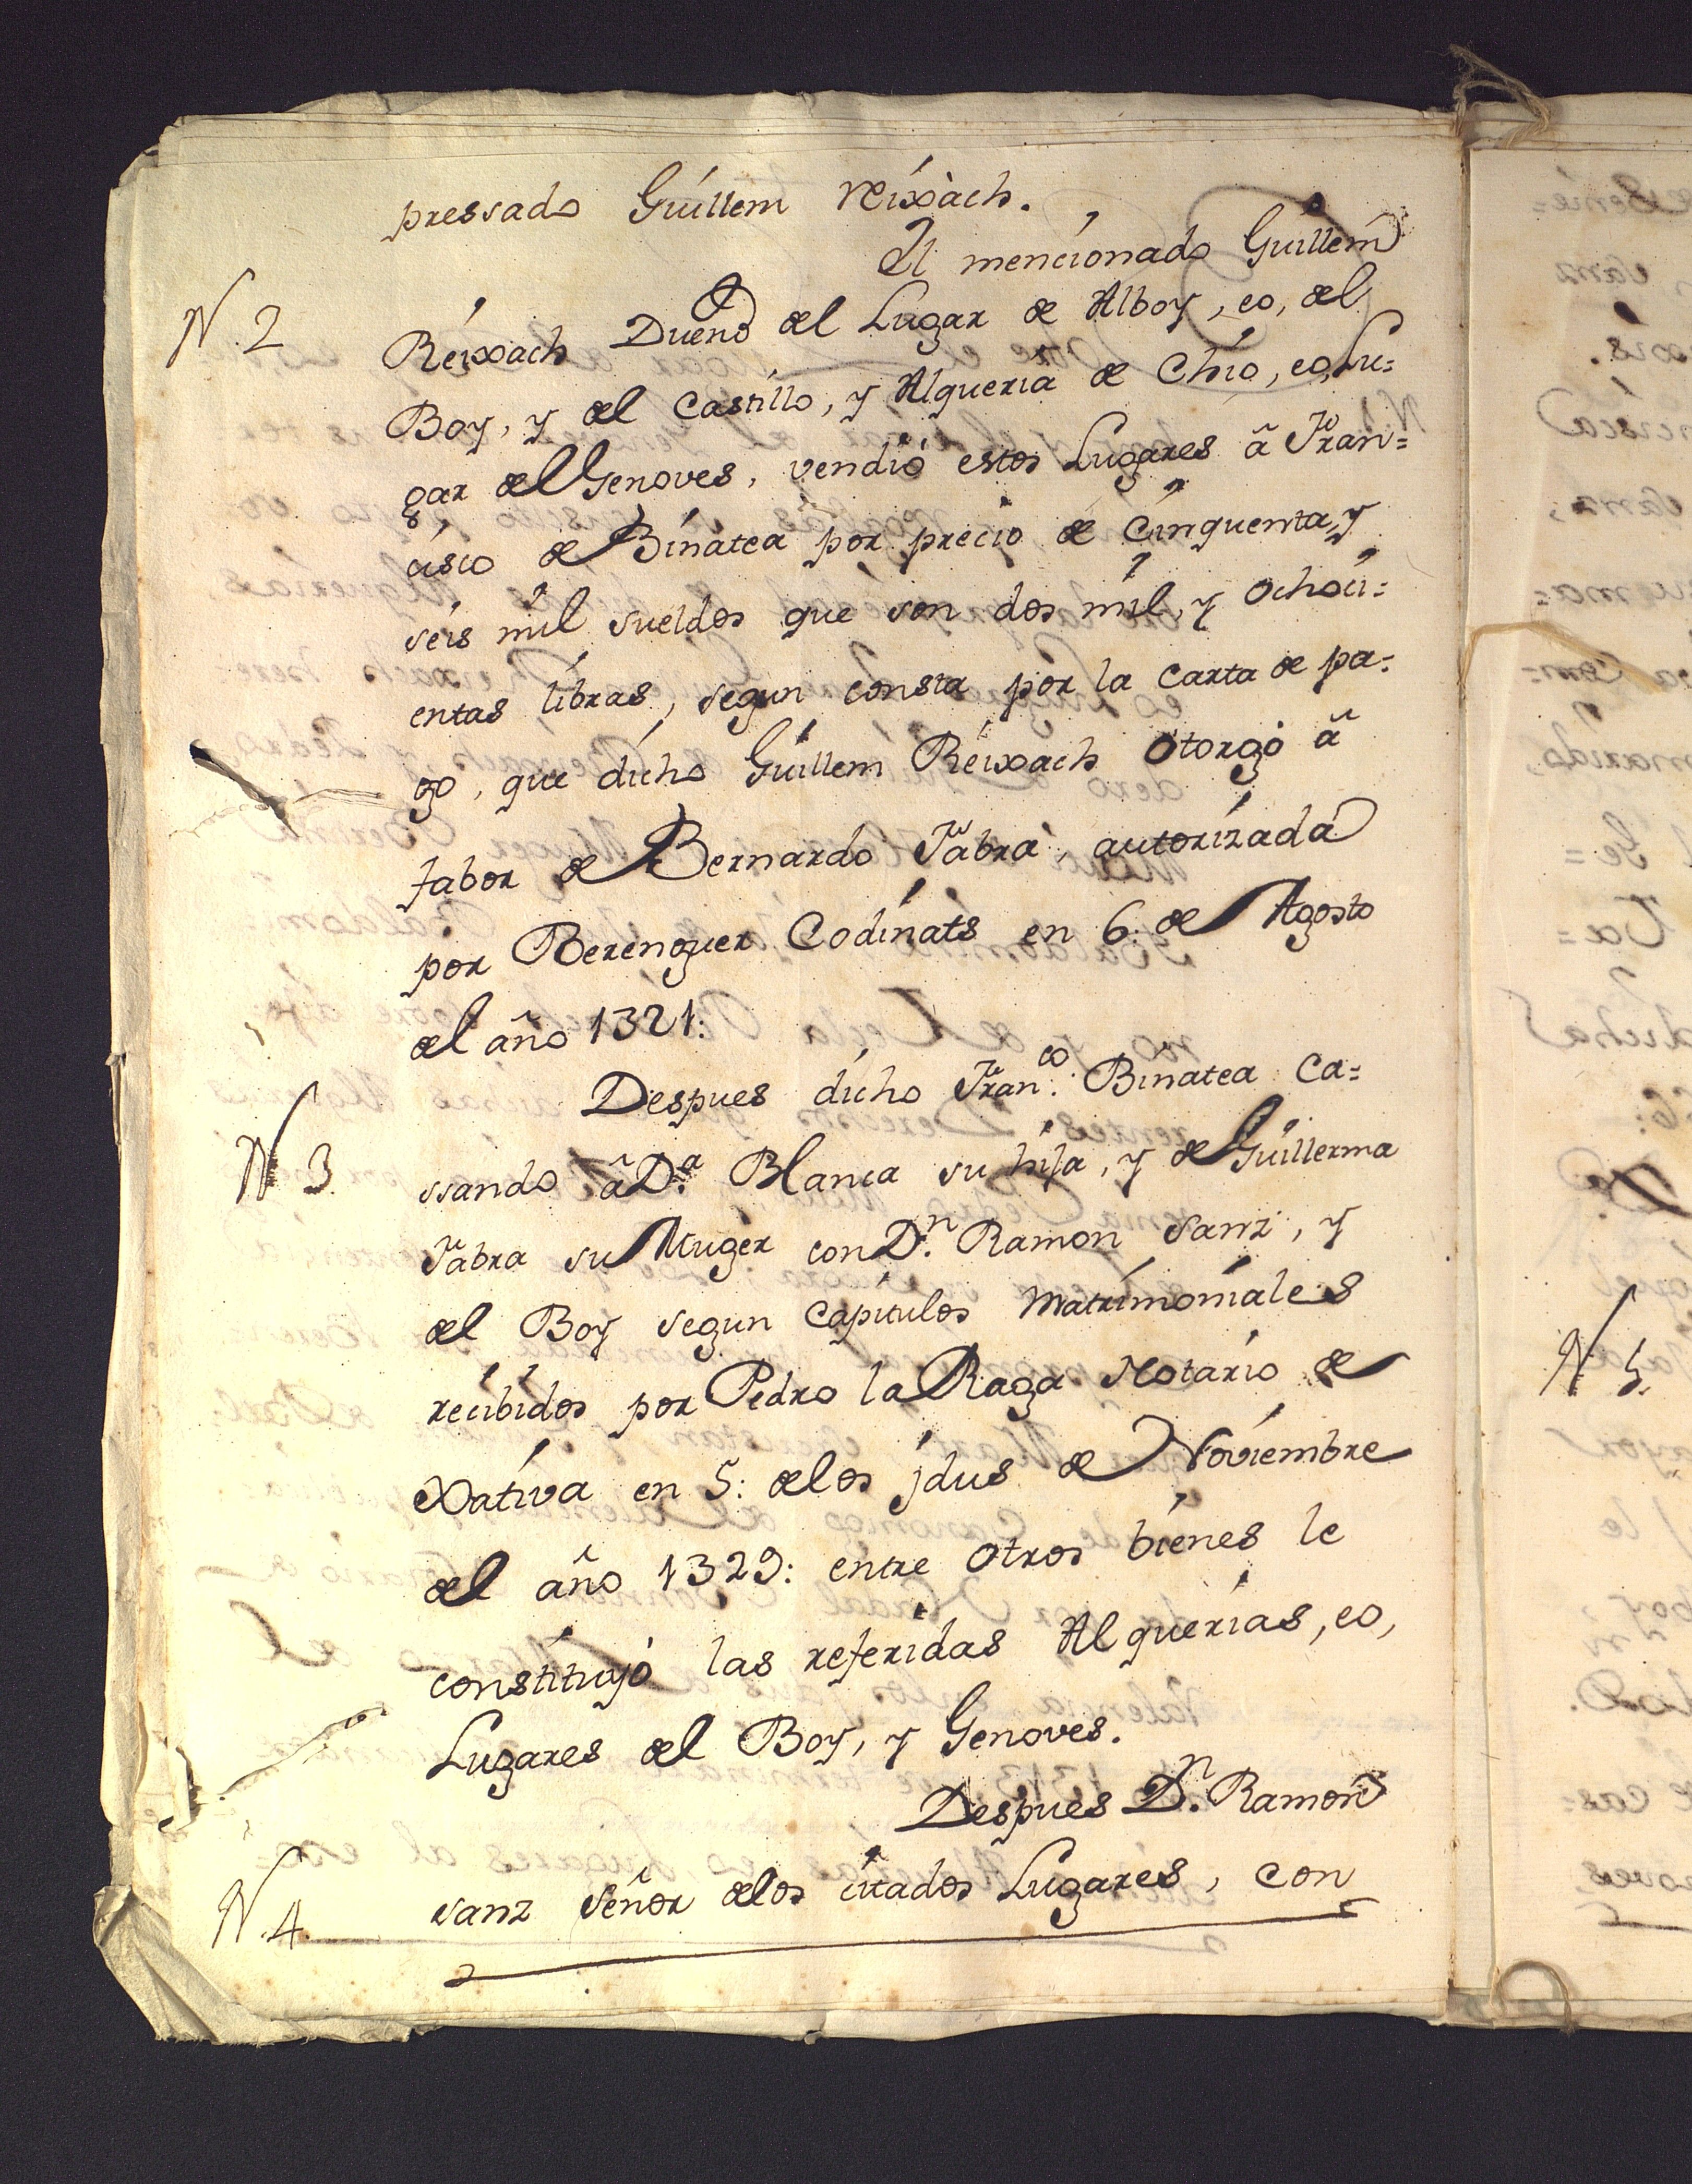 pressado Guillem Reixach.
El mencionado Guillem
N. 2
Reixach Dueño del Lugar de Alboy, eo, del
Boy, y del Castillo, y Alqueria de Chio, eo, Lu=
gar del Genoves, vendió estos Lugares â Fran=
cisco de Binatea por precio de Cinquenta, y
seis mil sueldos que son dos mil, y ochoci=
entas libras, segun consta por la Carta de pa=
go, que dicho Guillem Reixach Otorgó â
fabor de Bernardo Fabra, autorizada
por Berenguer Codinats en 6: de Agosto
del año 1321:
Despues dicho Fran.co Binatea Ca=
N 3.
ssando â D.a Blanca su hija, y de Guillerma
Fabra su Muger con D.n Ramon Sanz, y
del Boy segun Capitulos Matrimoniales
recibidos por Pedro la Raga Notario de
Xativa en 5: delos jdus de Noviembre
del año 1329: entre Otros bienes le
constituyó las referidas Alquerias, eo,
Lugares del Boy, y Genoves.
Despues D.n Ramon
N. 4.
sanz Señor delos citados Lugares, con
N 5.